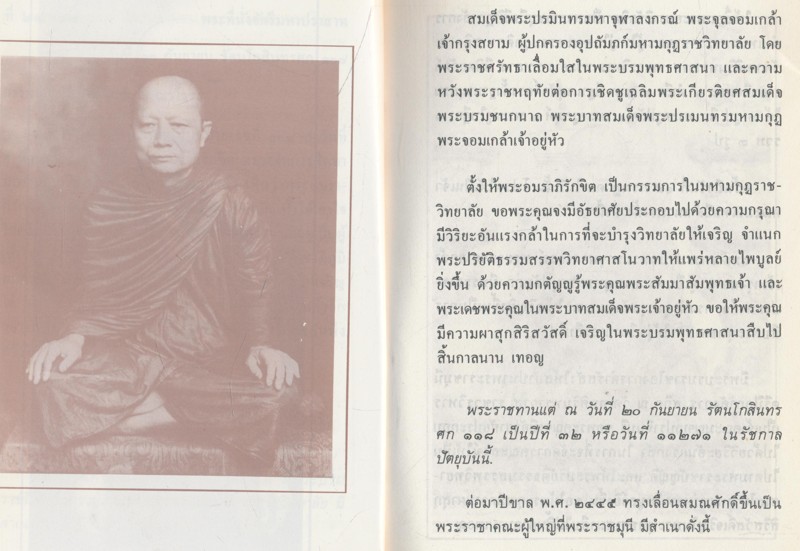 สมเด็จพระปรมินทรมหาจุฬาลงกรณ์ พระจุลจอมเกล้า
เจ้ากรุงสยาม ผู้ปกครองอุปถัมภก์มหามกุฏราชวิทยาลัย โดย
พระราชศรัทธาเลื่อมใสในพระบรมพุทธศาสนา และความ
หวังพระราชหฤทัยต่อการเชิดชูเฉลิมพระเกียรติยศสมเด็จ
พระบรมชนกนาถ พระบาทสมเด็จพระปรเมนทรมหามกุฎ
พระจอมเกล้าเจ้าอยู่หัว
ตั้งให้พระอมราภิรักขิต เป็นกรรมการในมหามกุฏราช-
วิทยาลัย ขอพระคุณจงมีอัธยาศัยประกอบไปด้วยความกรุณา
มีวิริยะอันแรงกล้าในการที่จะบำรุงวิทยาลัยให้เจริญ จำแนก
พระปริยัติธรรมสรรพวิทยาศาสโนวาทให้แพร่หลายไพบูลย์
ยิ่งขึ้น ด้วยความกตัญญูรู้พระคุณพระสัมมาสัมพุทธเจ้า และ
พระเดชพระคุณในพระบาทสมเด็จพระเจ้าอยู่หัว ขอให้พระคุณ
มีความผาสุกสิริสวัสดิ์ เจริญในพระบรมพุทธศาสนาสืบไป
สิ้นกาลนาน เทอญ
พระราชทานแต่ ณ วันที่ ๒๐ กันยายน รัตนโกสินทร
ศก ๑๑๘ เป็นปีที่ ๓๒ หรือวันที่ ๑๑๒๗๑ ในรัชกาล
ปัตยุบันนี้.
ต่อมาปีขาล พ.ศ. ๒๔๔๕ ทรงเลื่อนสมณศักดิ์ขึ้นเป็น
พระราชาคณะผู้ใหญ่ที่พระราชมุนี มีสำเนาดั่งนี้